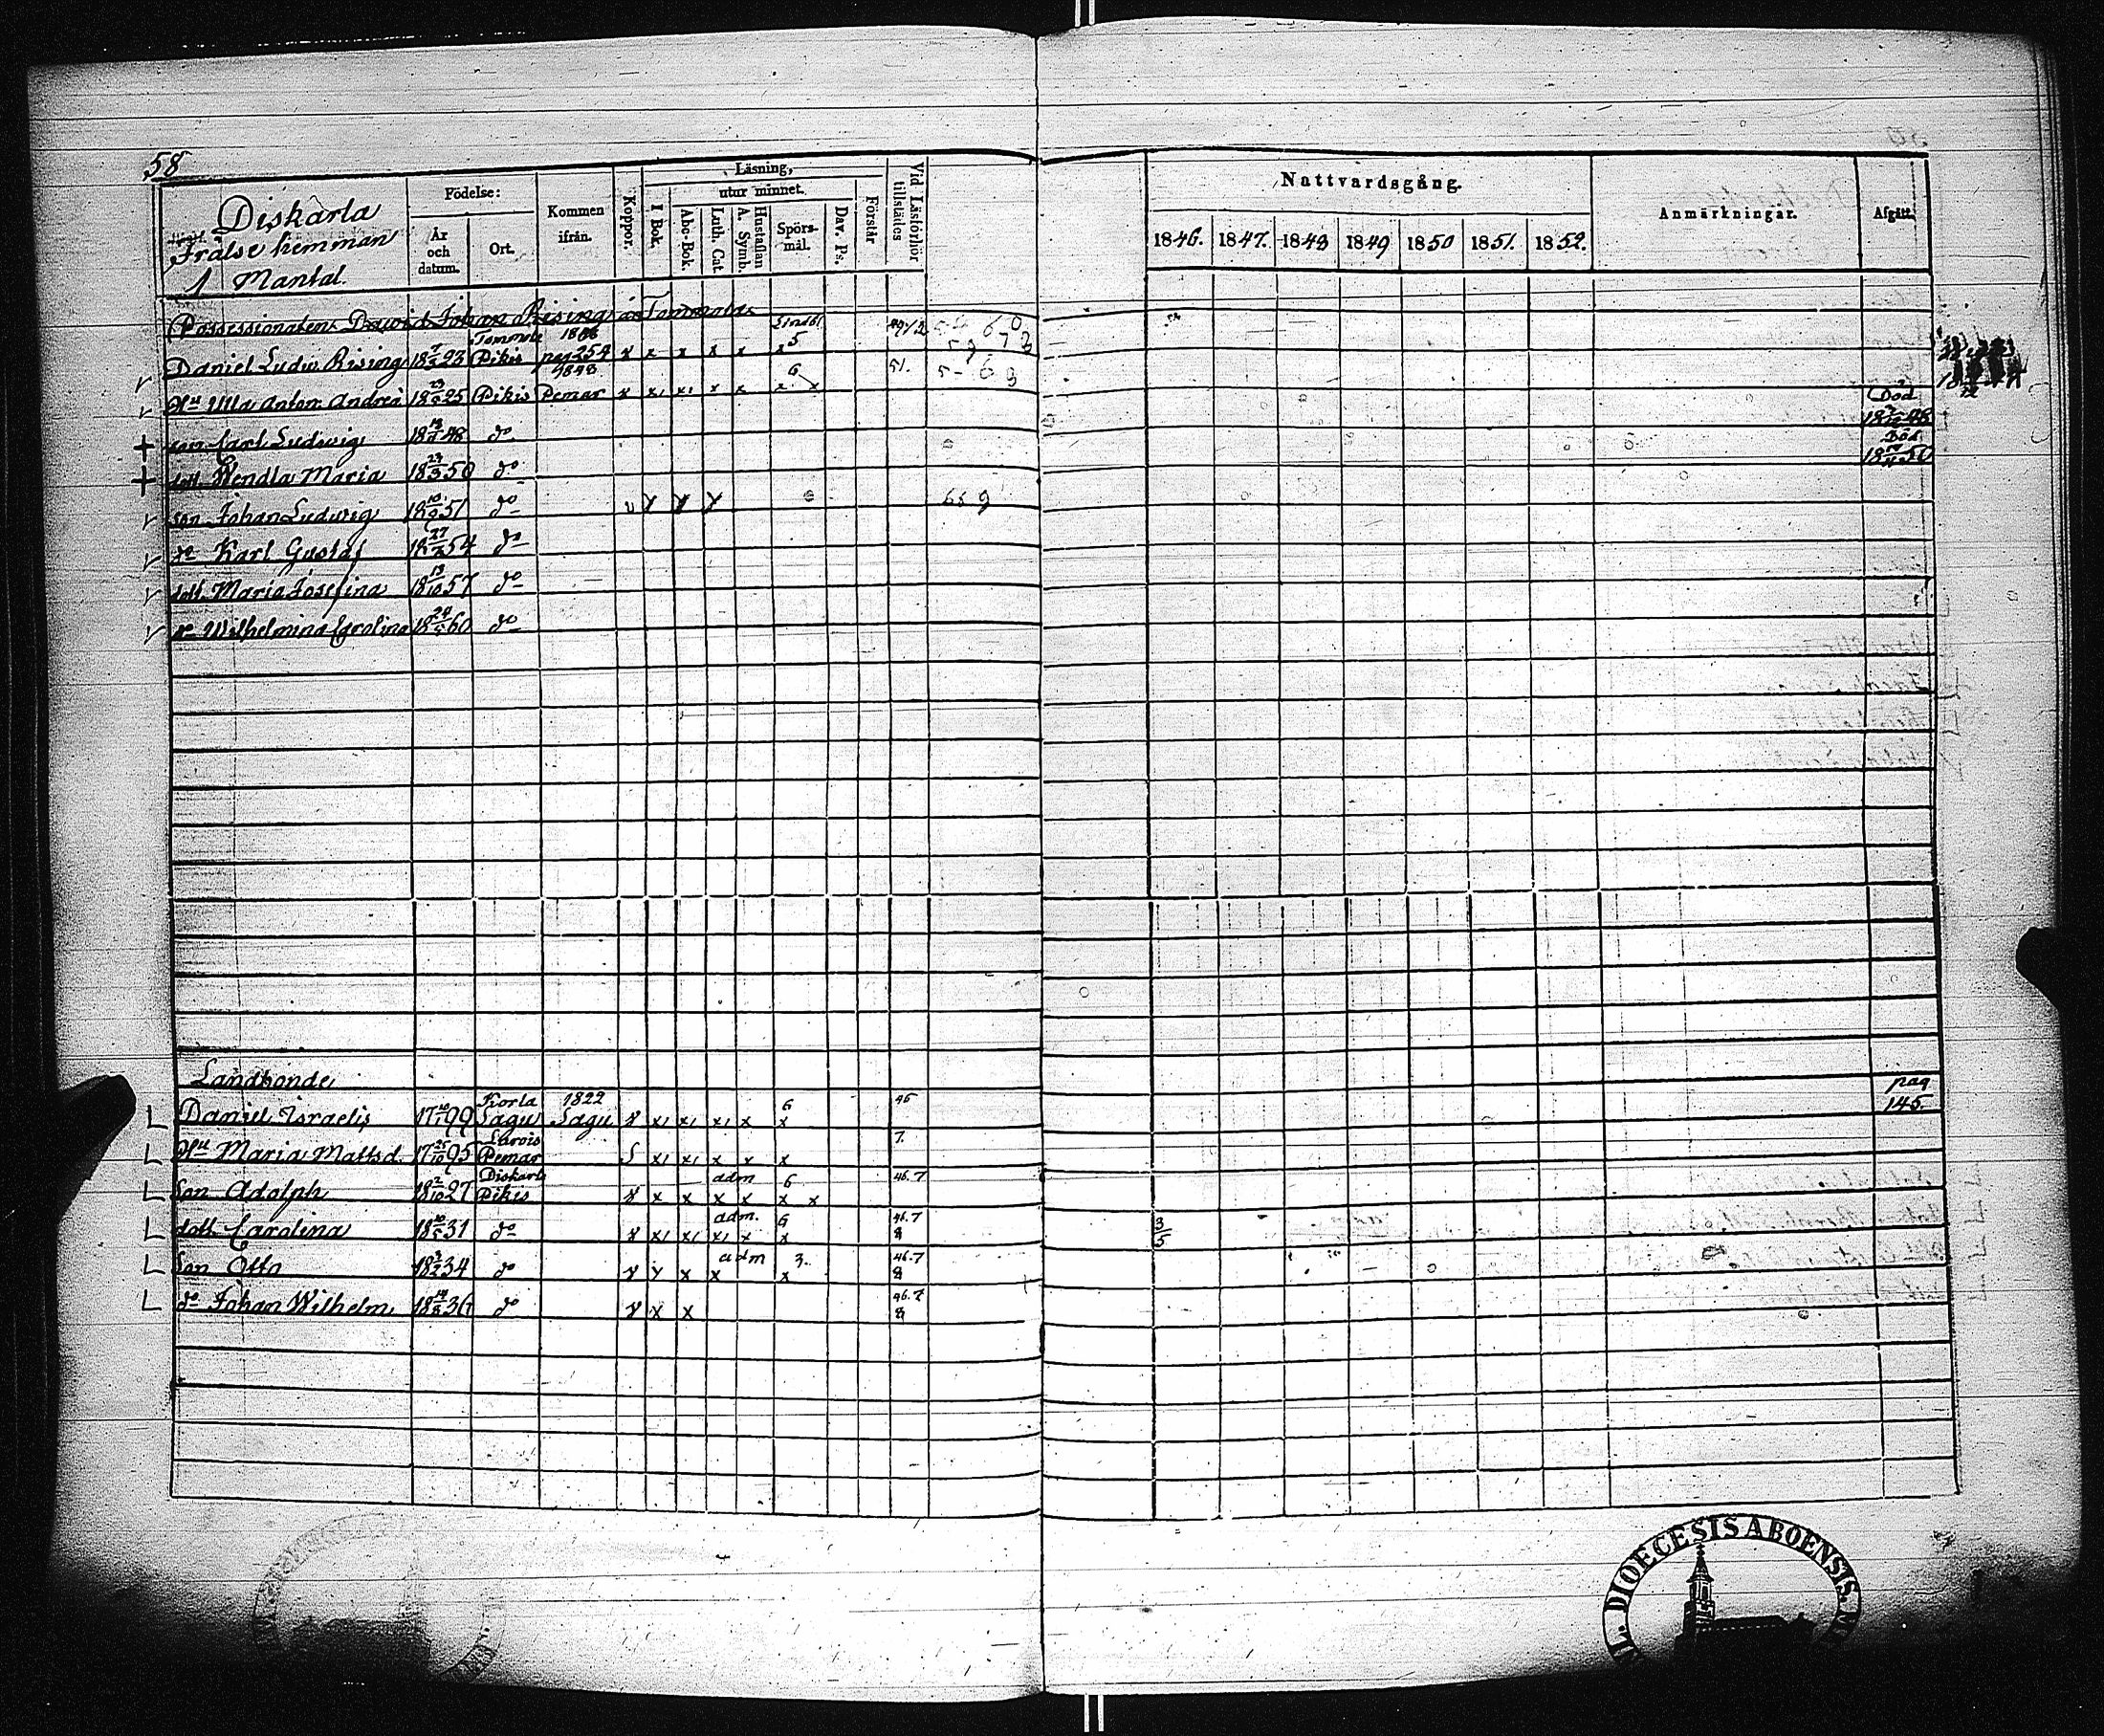 58
Diskarla
Frälse hemman
1 Mantal.
Födelse:
År och datum.
Ort.
Kommen ifrån.
Koppor.
Läsning,
I Bok.
utur minnet.
Abc-Bok.
Luth. Cat
Hustaflan A. Symb.
Spörsmål.
Dav. Ps.
Förstår
Vid Läsförhör tillstädes
Nattvardsgång.
1846. 1847. 1848 1849 1850 1851. 1852.
Anmärkningar.
Afgått.
Possessionaten David Johan Rising
Daniel Ludv. Rising 18 23 Pikis pag 254 x x x x x x 5
Hu Ulla Anton. Andreä 18 25 Pikis Pemar x x x x x x x 6 51.
Död
son Carl Ludvig 18 48 do 48
Död
dott Wendla Maria 18 23/3 50 do 50
son Johan Ludvig 18 51 do
do Karl Gustaf 18 54 do
dott Maria Josefina 18 13/10 57 do
do Wilhelmina Carolina 18 60 do
Landbonde
pag
Daniel Israelis 17 99 Korla Sagu 1822 Sagu x x x x x x 6 46 145.
Hu Maria Mattsd. 17 95 Pemar x x x x x 7.
Son Adolph 18 2/10 27 Diskarla Pikis x x x x x x adm 6 46.7
dott Carolina 18 31 do x x x x x x adm. 6 46.7 8 3/5
Son Otto 18 34 do adm 3. 46.7 8
do Johan Wilhelm 18 36 do x x 46.7 8
DIOECESIS ABOENSIS